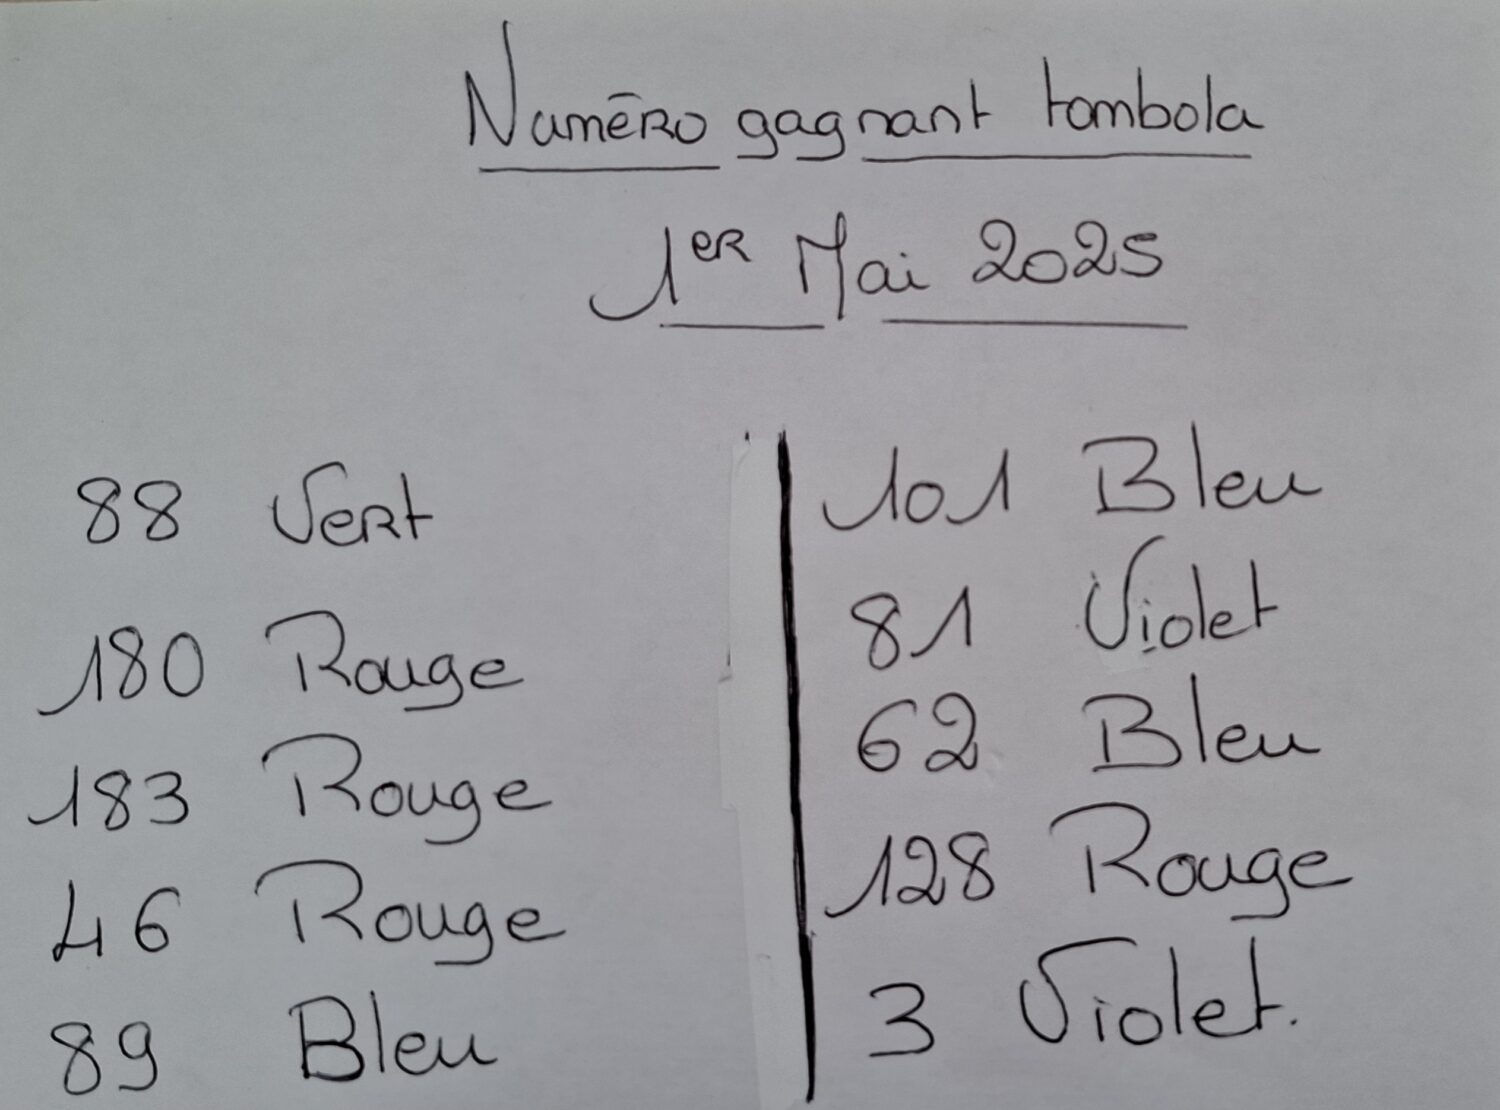 Numéro gagnant tombola
1er Mai 2025
88 Vert
180 Rouge
183 Rouge
46 Rouge
89 Bleu
101 Bleu
81 Violet
62 Bleu
128 Rouge
3 Violet.